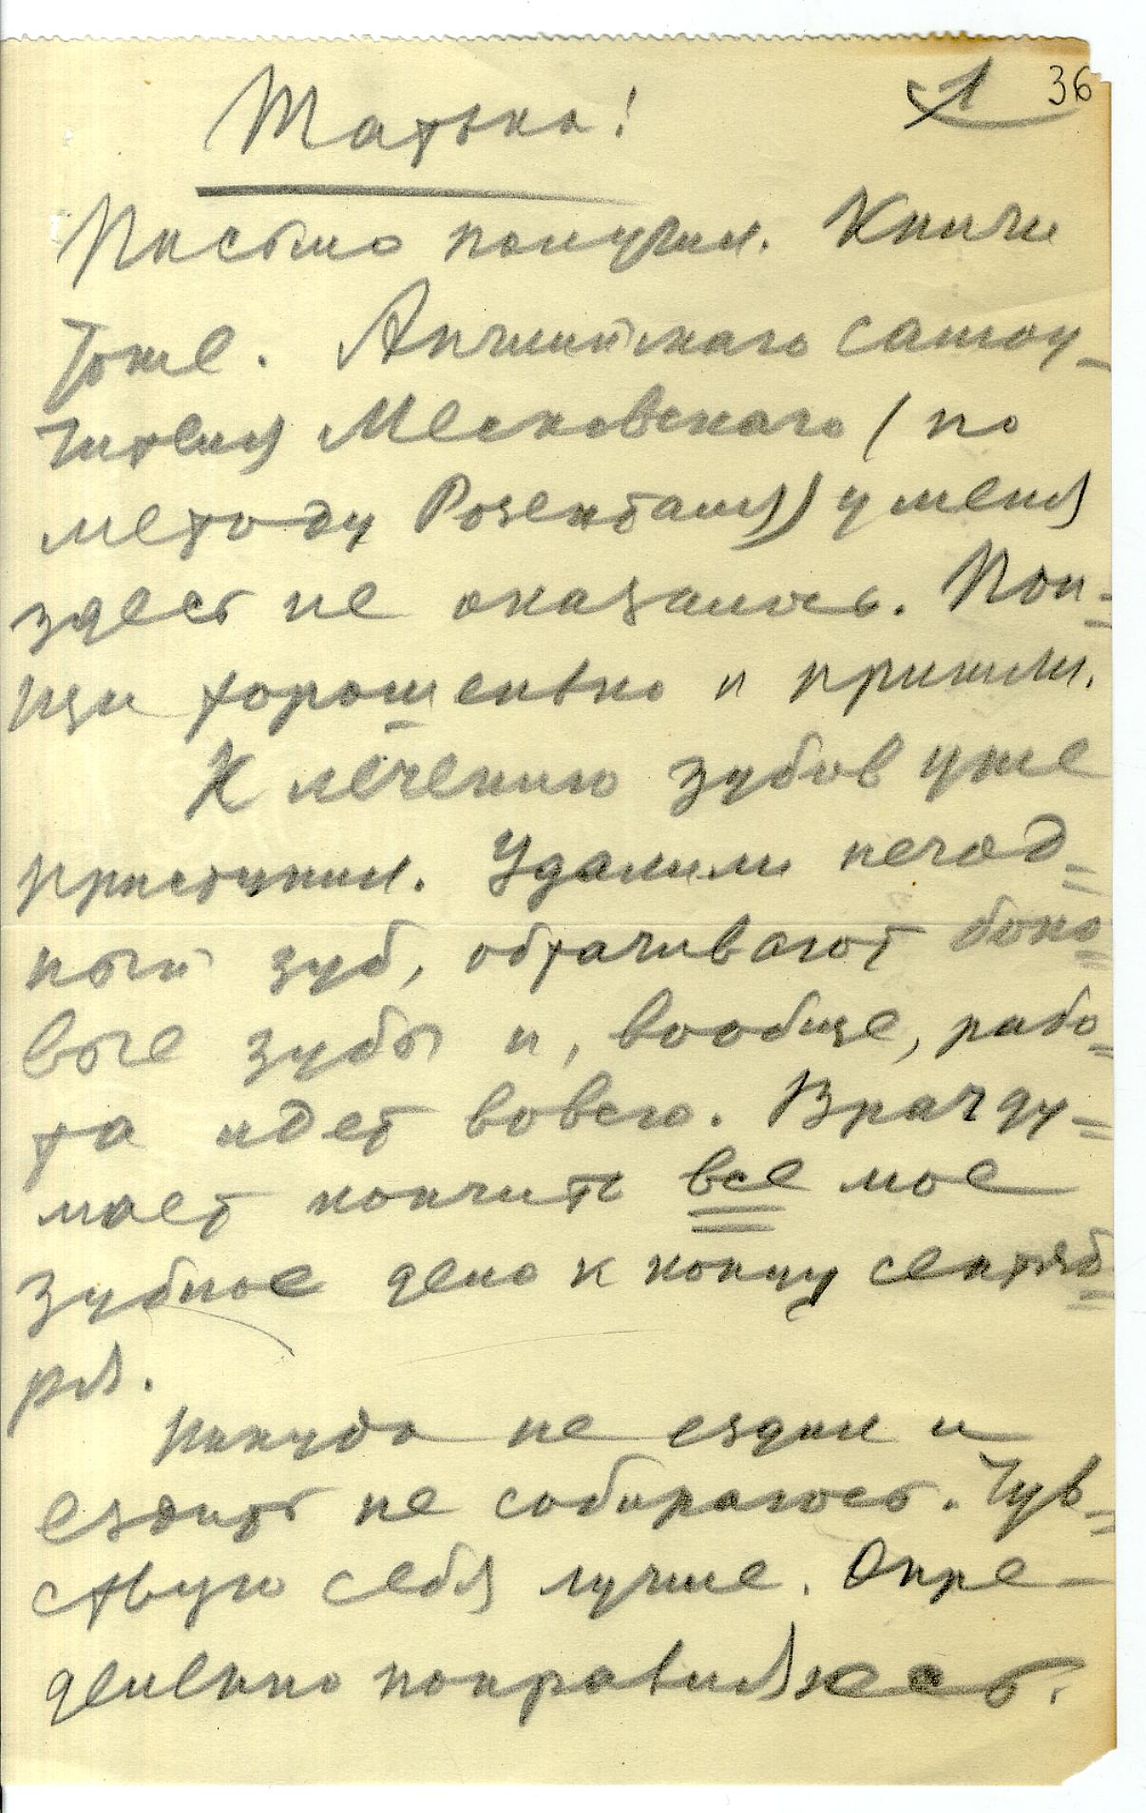 1 36
Татька!
Письмо получил. Книги
тоже. Английского самоу-
чителя Месковского (по
методу Розенталя) у меня
здесь не оказалось. Пои-
щи хорошенько и пришли.
К лечению зубов уже
приступил. Удалили негод-
ный зуб, обтачивают боко-
вые зубы и, вообще, рабо-
та идет вовсю. Врач ду-
мает кончить все мое
зубное дело к концу сентяб-
ря.
Никуда не ездил и
ездить не собираюсь. Чув-
ствую себя лучше. Опре-
деленно поправляюсь.